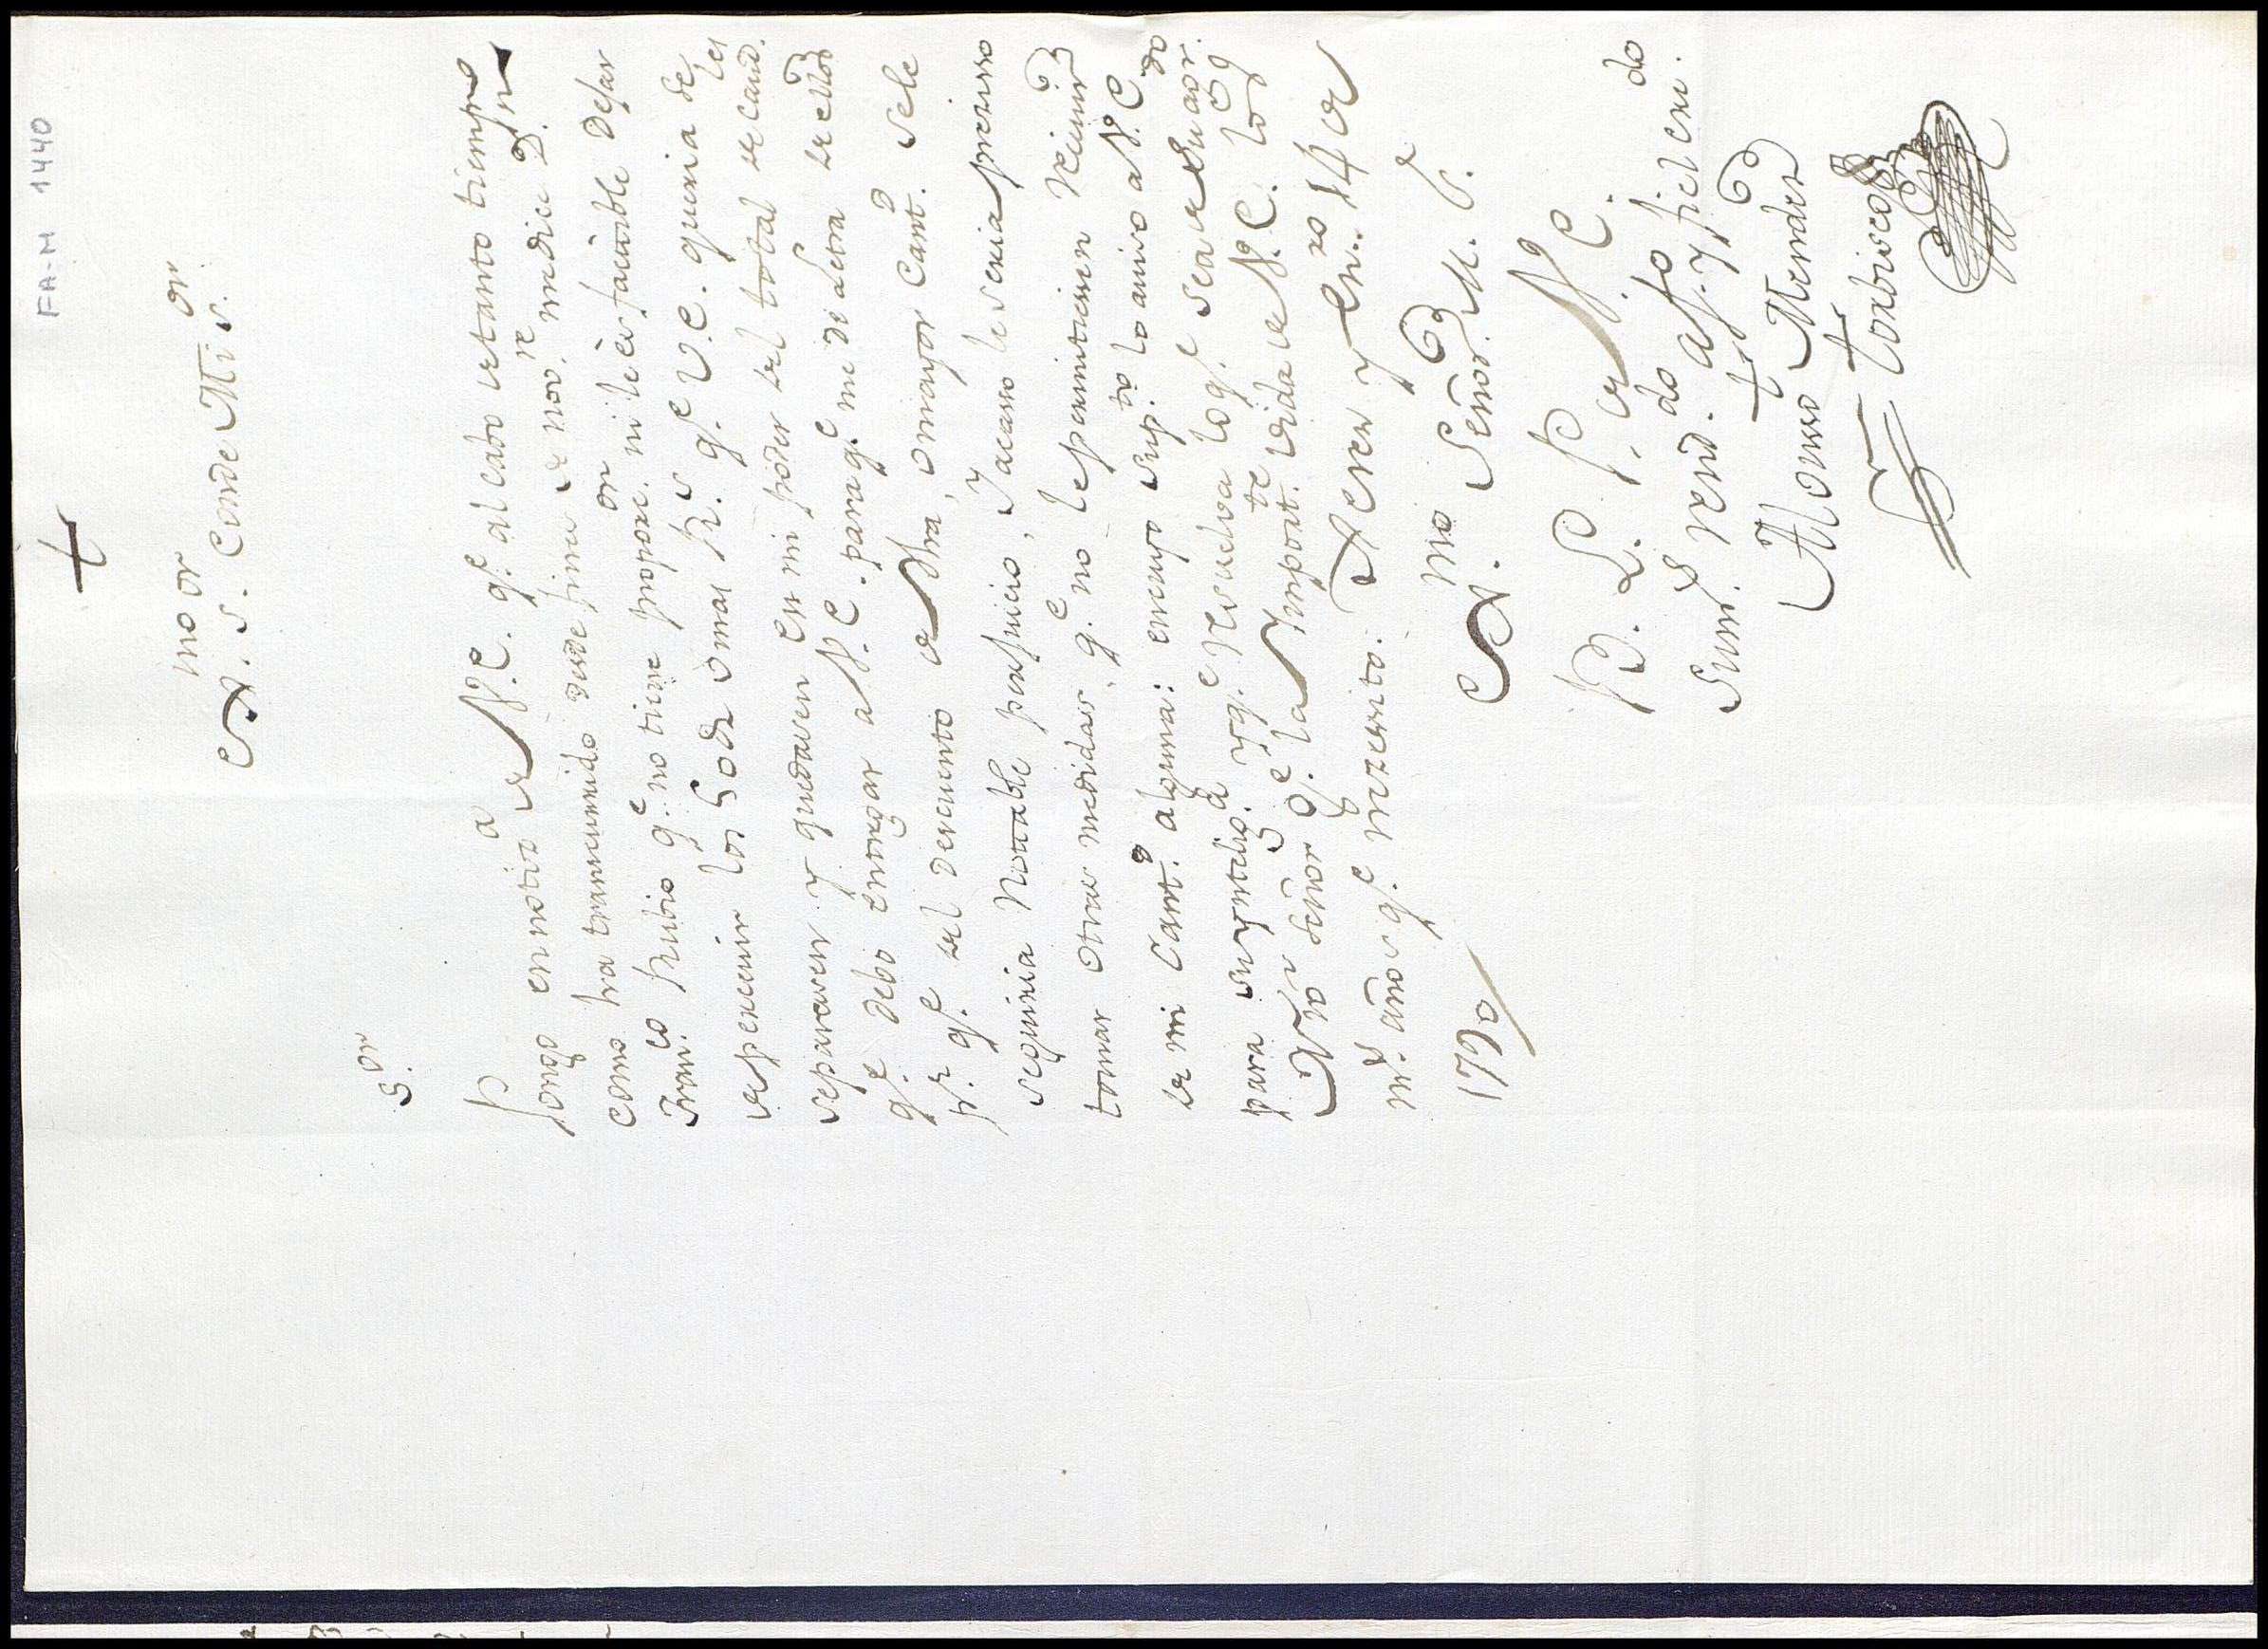 FA-M 1440
t
Ex.mo S.or Conde Mi S.or
S.or
Pongo en notiz.a de V.E. q.e al cabo de tanto tiempo
como ha transcurrido desde fines de nov.re me dice D.n
Fran.co Rubio q.e no tiene proporz.on ni le es facible dejar
de percevir los 50 d. o mas R.s q.e V.E. queria se les
separasen y quedasen en mi poder del total de cantd.
q.e debo entregar a V.E. para q.e me diera letra de ellos
p.r q.e del descuento de dha, o mayor Cant.d se le
seguiria Notable perjuicio, Y acasso le seria presisso
tomar otras medidas, q.e no le permitiesen Recivir
de mi Cant.d alguna: en cuyo Sup.to lo aviso a V.E.
para su yntelig.a y q.e Resuelva lo q.e sea de su ag.do
Nro Señor g.e la Import.te vida de V.E. los
m.s años q.e nezesito. Xerez y En.ro 14 de
1790
Ex.mo Señor
B. L. P. de V.E.
su m.s rend.do af.to y fiel cri.do
Alonso Mendez
t Torbisco